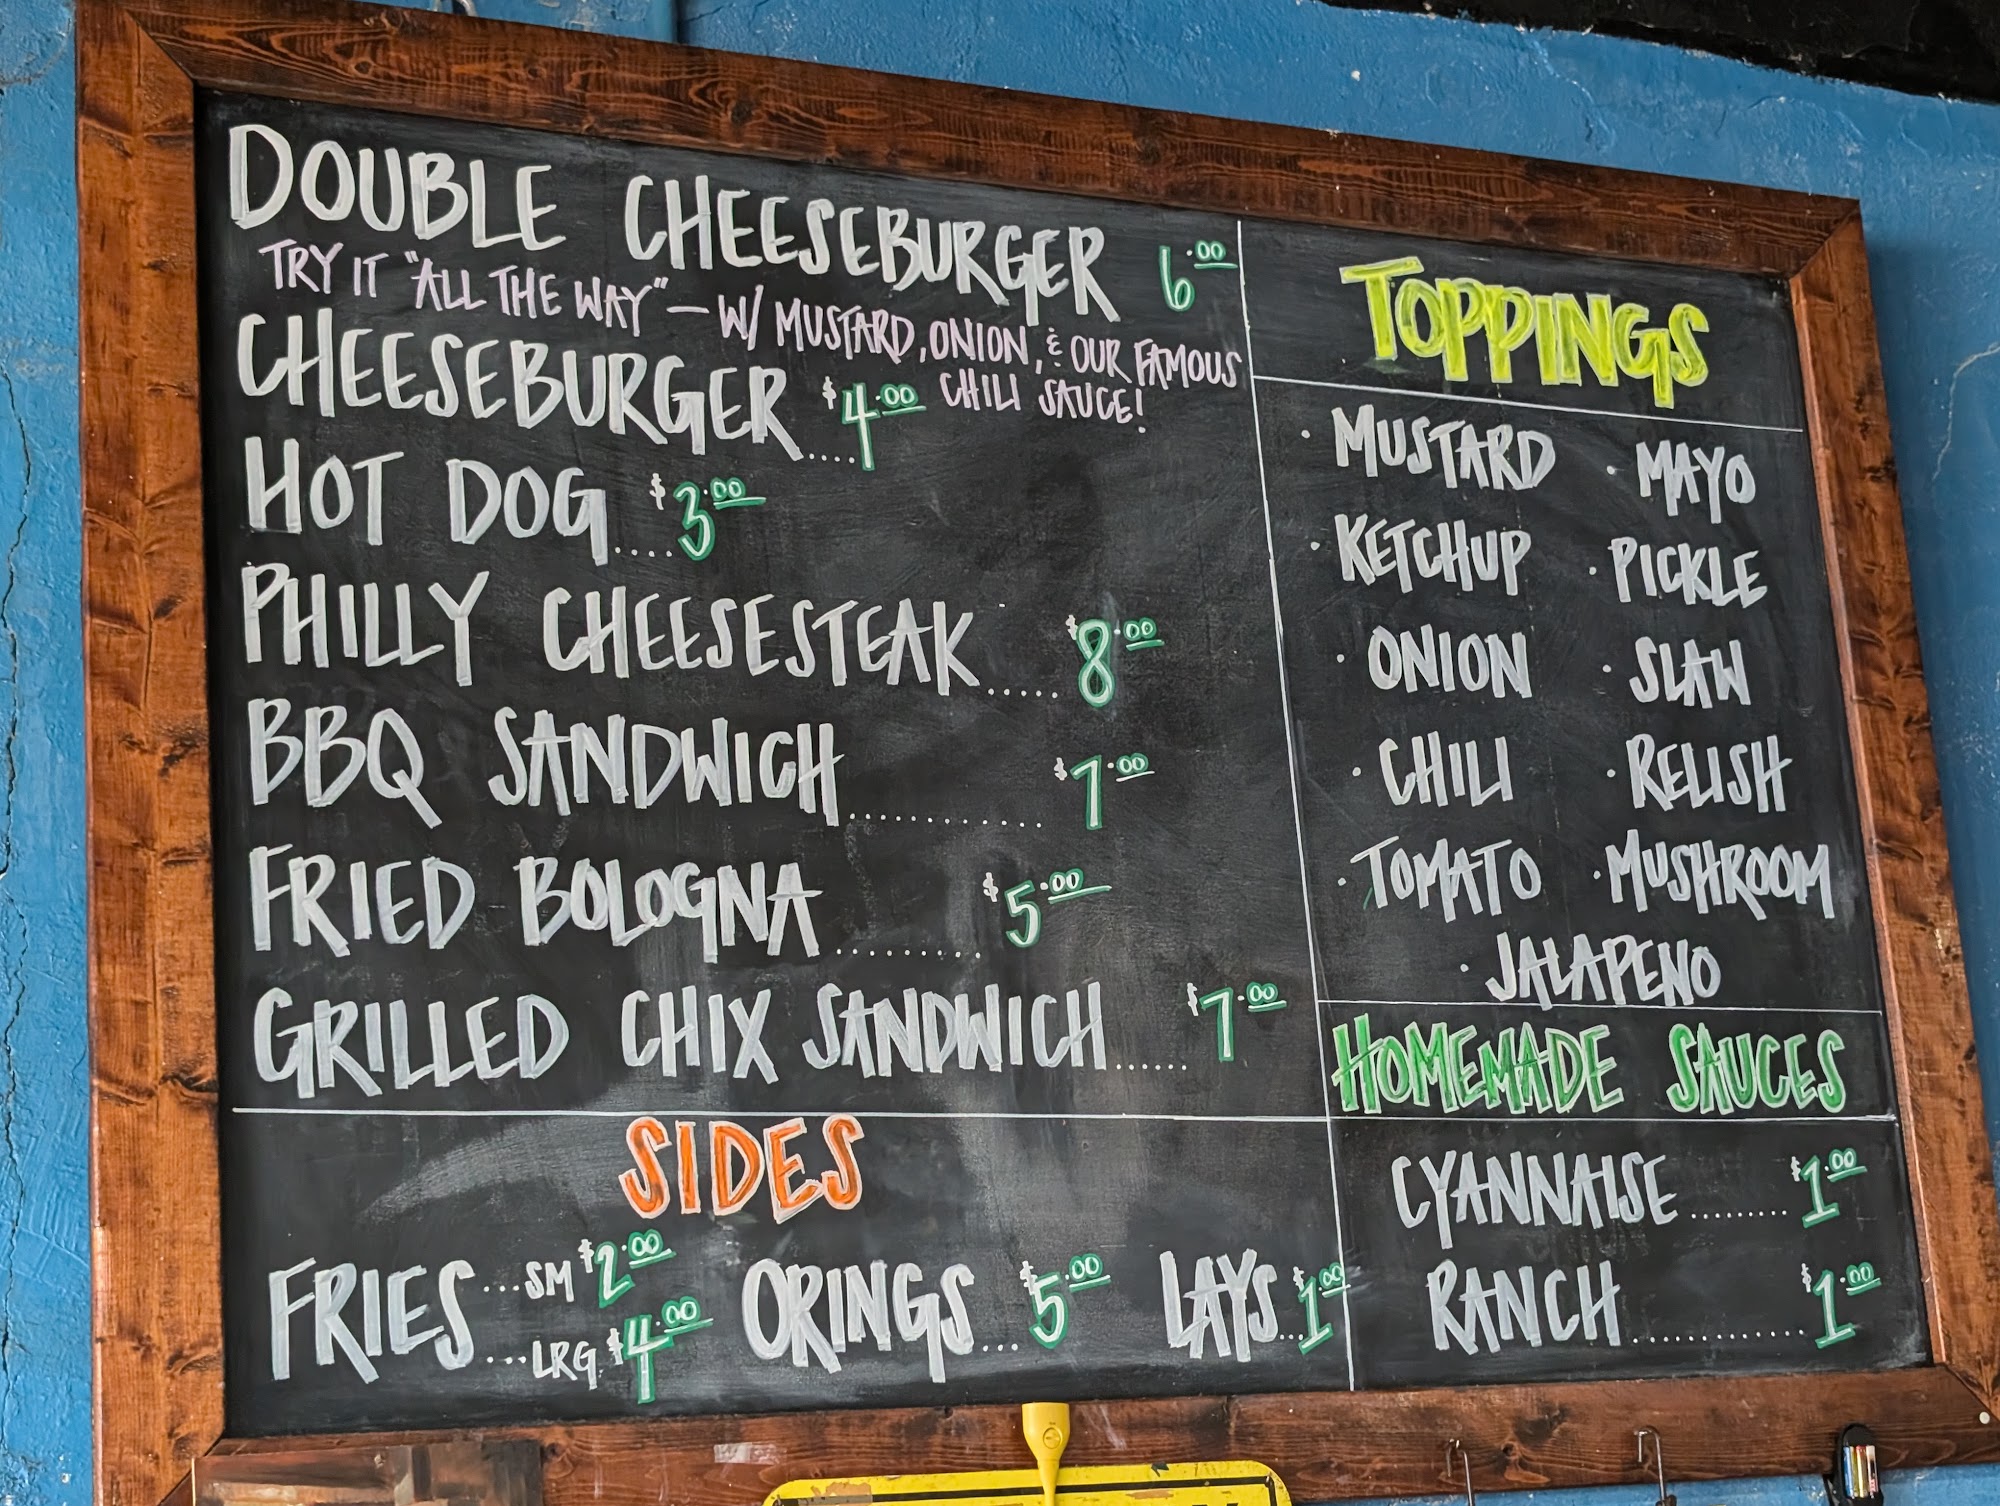 DOUBLE CHEESEBURGER 6.00
TRY IT "ALL THE WAY" - W/ MUSTARD, ONION, & OUR FAMOUS
CHILI SAUCE!
CHEESEBURGER....$4.00
HOT DOG....$3.00
PHILLY CHEESESTEAK.....$8.00
BBQ SANDWICH.............$7.00
FRIED BOLOGNA.........$5.00
GRILLED CHIX SANDWICH......$7.00
SIDES
FRIES...SM $2.00
...LRG. $4.00
ORINGS...$5.00
LAYS...$1.00
TOPPINGS
· MUSTARD · MAYO
· KETCHUP · PICKLE
· ONION · SLAW
· CHILI · RELISH
· TOMATO · MUSHROOM
· JALAPENO
HOMEMADE SAUCES
CYANNAISE.........$1.00
RANCH............$1.00